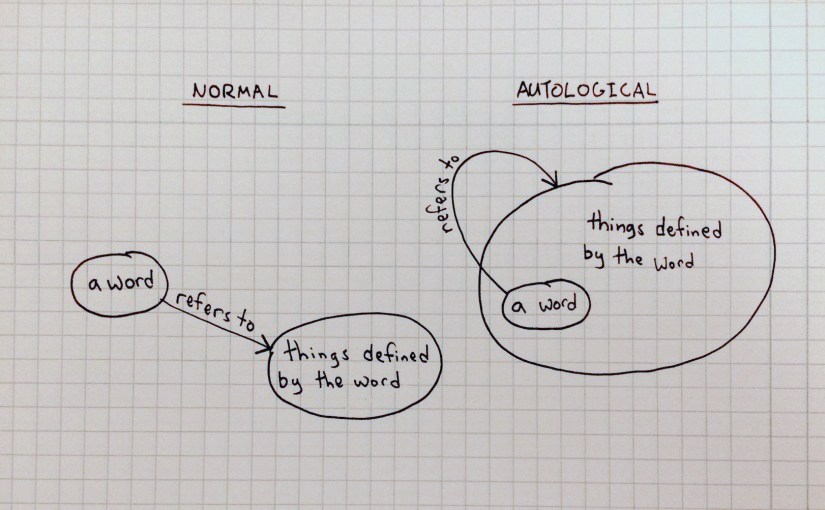 NORMAL
a word
refers to
things defined
by the word
AUTOLOGICAL
refers to
things defined
by the word
a word